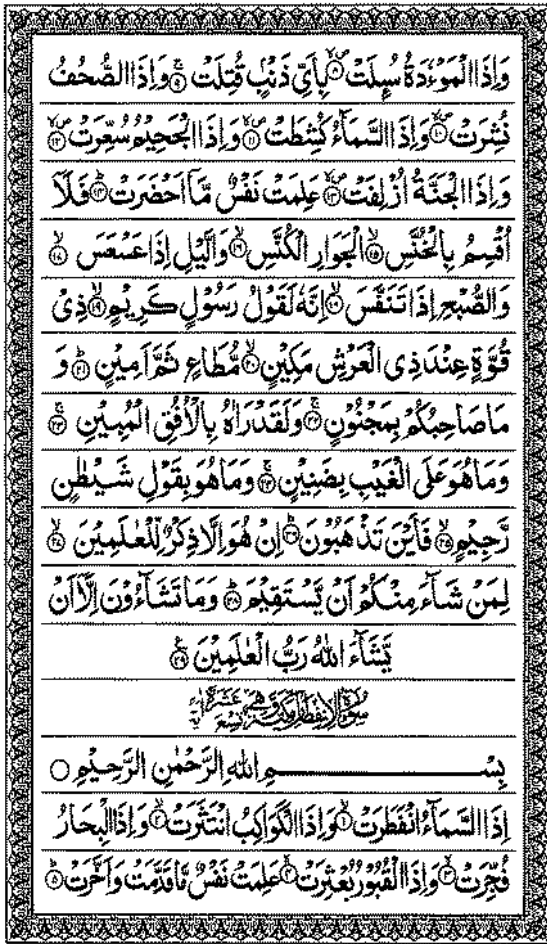 وَاِذَا الْمَوْءٗدَةُ سُىِٕلَتْ ۪ۙ‏﴿۸﴾ بِاَىِّ ذَنْۢبٍ قُتِلَتْ ۚ‏﴿۹﴾ وَاِذَا الصُّحُفُ
نُشِرَتْ ۪ۙ‏﴿۱۰﴾ وَاِذَا السَّمَآءُ كُشِطَتْ ۪ۙ‏﴿۱۱﴾ وَاِذَا الْجَحِيْمُ سُعِّرَتْ ۪ۙ‏﴿۱۲﴾
وَاِذَا الْجَنَّةُ اُزْلِفَتْ ۪ۙ‏﴿۱۳﴾ عَلِمَتْ نَفْسٌ مَّاۤ اَحْضَرَتْ ؕ‏﴿۱۴﴾ فَلَاۤ
اُقْسِمُ بِالْخُنَّسِ ۙ‏﴿۱۵﴾ الْجَوَارِ الْكُنَّسِ ۙ‏﴿۱۶﴾ وَالَّيْلِ اِذَا عَسْعَسَ ۙ‏﴿۱۷﴾
وَالصُّبْحِ اِذَا تَنَفَّسَ ۙ‏﴿۱۸﴾ اِنَّهٗ لَقَوْلُ رَسُوْلٍ كَرِيْمٍ ۙ‏﴿۱۹﴾ ذِىْ
قُوَّةٍ عِنْدَ ذِى الْعَرْشِ مَكِيْنٍ ۙ‏﴿۲۰﴾ مُّطَاعٍ ثَمَّ اَمِيْنٍ ؕ‏﴿۲۱﴾ وَ
مَا صَاحِبُكُمْ بِمَجْنُوْنٍ ۚ‏﴿۲۲﴾ وَلَقَدْ رَاٰهُ بِالْاُفُقِ الْمُبِيْنِ ۚ‏﴿۲۳﴾
وَمَا هُوَ عَلَى الْغَيْبِ بِضَنِيْنٍ ۚ‏﴿۲۴﴾ وَمَا هُوَ بِقَوْلِ شَيْطٰنٍ
رَّجِيْمٍ ۙ‏﴿۲۵﴾ فَاَيْنَ تَذْهَبُوْنَ ؕ‏﴿۲۶﴾ اِنْ هُوَ اِلَّا ذِكْرٌ لِّلْعٰلَمِيْنَ ۙ‏﴿۲۷﴾
لِمَنْ شَآءَ مِنْكُمْ اَنْ يَّسْتَقِيْمَ ؕ‏﴿۲۸﴾ وَمَا تَشَآءُوْنَ اِلَّاۤ اَنْ
يَّشَآءَ اللّٰهُ رَبُّ الْعٰلَمِيْنَ ‏﴿۲۹﴾
سورة الانفطار مكية وهي تسع عشرة اية
بِسْمِ اللّٰهِ الرَّحْمٰنِ الرَّحِيْمِ ○
اِذَا السَّمَآءُ انْفَطَرَتْ ۙ‏﴿۱﴾ وَاِذَا الْكَوَاكِبُ انْتَثَرَتْ ۙ‏﴿۲﴾ وَاِذَا الْبِحَارُ
فُجِّرَتْ ۙ‏﴿۳﴾ وَاِذَا الْقُبُوْرُ بُعْثِرَتْ ۙ‏﴿۴﴾ عَلِمَتْ نَفْسٌ مَّا قَدَّمَتْ وَاَخَّرَتْ ؕ‏﴿۵﴾